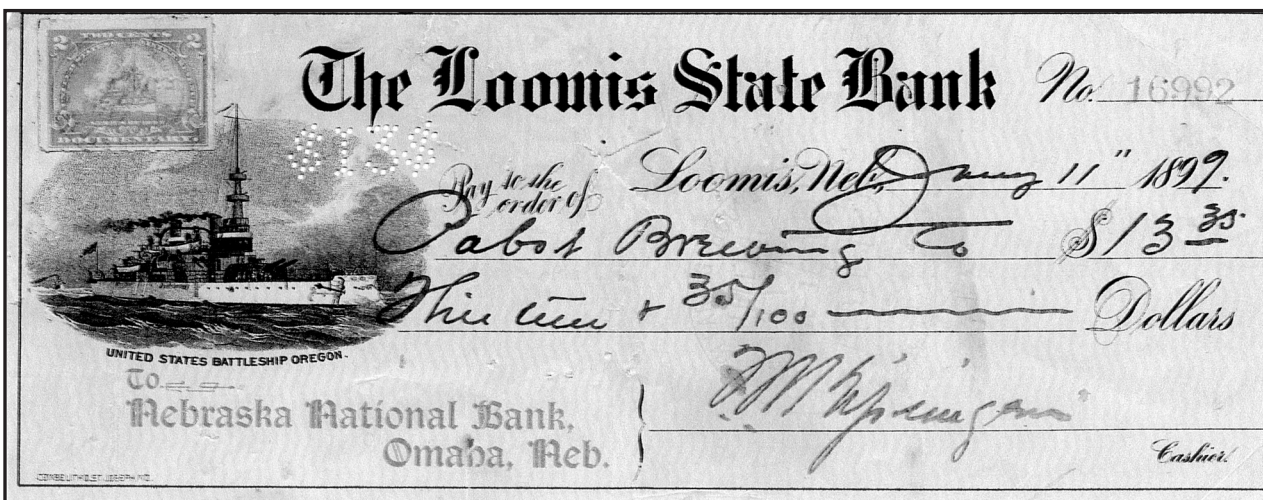 2 TWO CENTS 2
DOCUMENTARY
The Loomis State Bank
No. 16992
$13$
Loomis, Neb, Jany 11" 1899.
Pay to the order of
Pabst Brewing Co $ 13 35
Thirteen + 35/100 Dollars
UNITED STATES BATTLESHIP OREGON.
To
Nebraska National Bank,
Omaha, Neb.
Cashier.